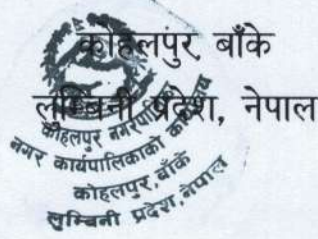 कोहलपुर, बाँके
लुम्बिनी प्रदेश, नेपाल
कोहलपुर नगरपालिका
नगर कार्यपालिकाको कार्यालय
कोहलपुर, बाँके
लुम्बिनी प्रदेश, नेपाल